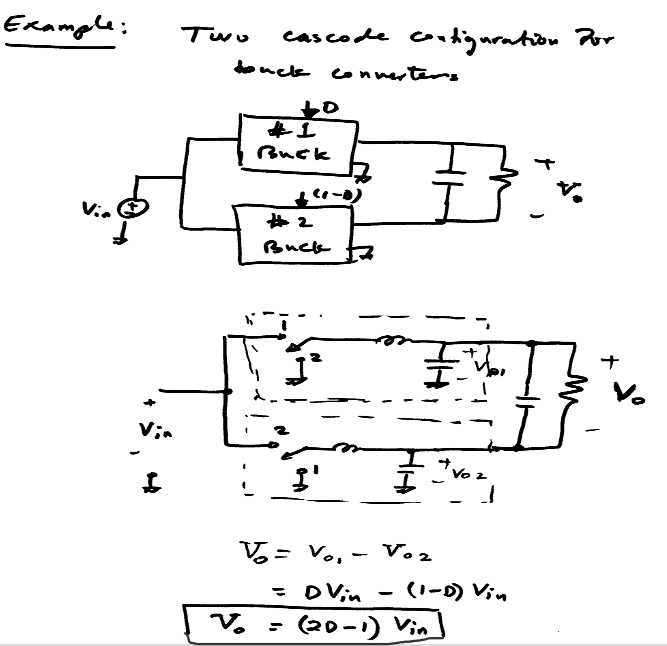 Example: Two cascode configuration for
buck converters
D
# 1
Buck
Vin
+
-
(1-D)
# 2
Buck
+
Vo
-
1
2
+
Vo1
-
+
Vo
-
+
Vin
-
2
1
+
Vo2
-
Vo = Vo1 - Vo2
= D Vin - (1-D) Vin
Vo = (2D-1) Vin